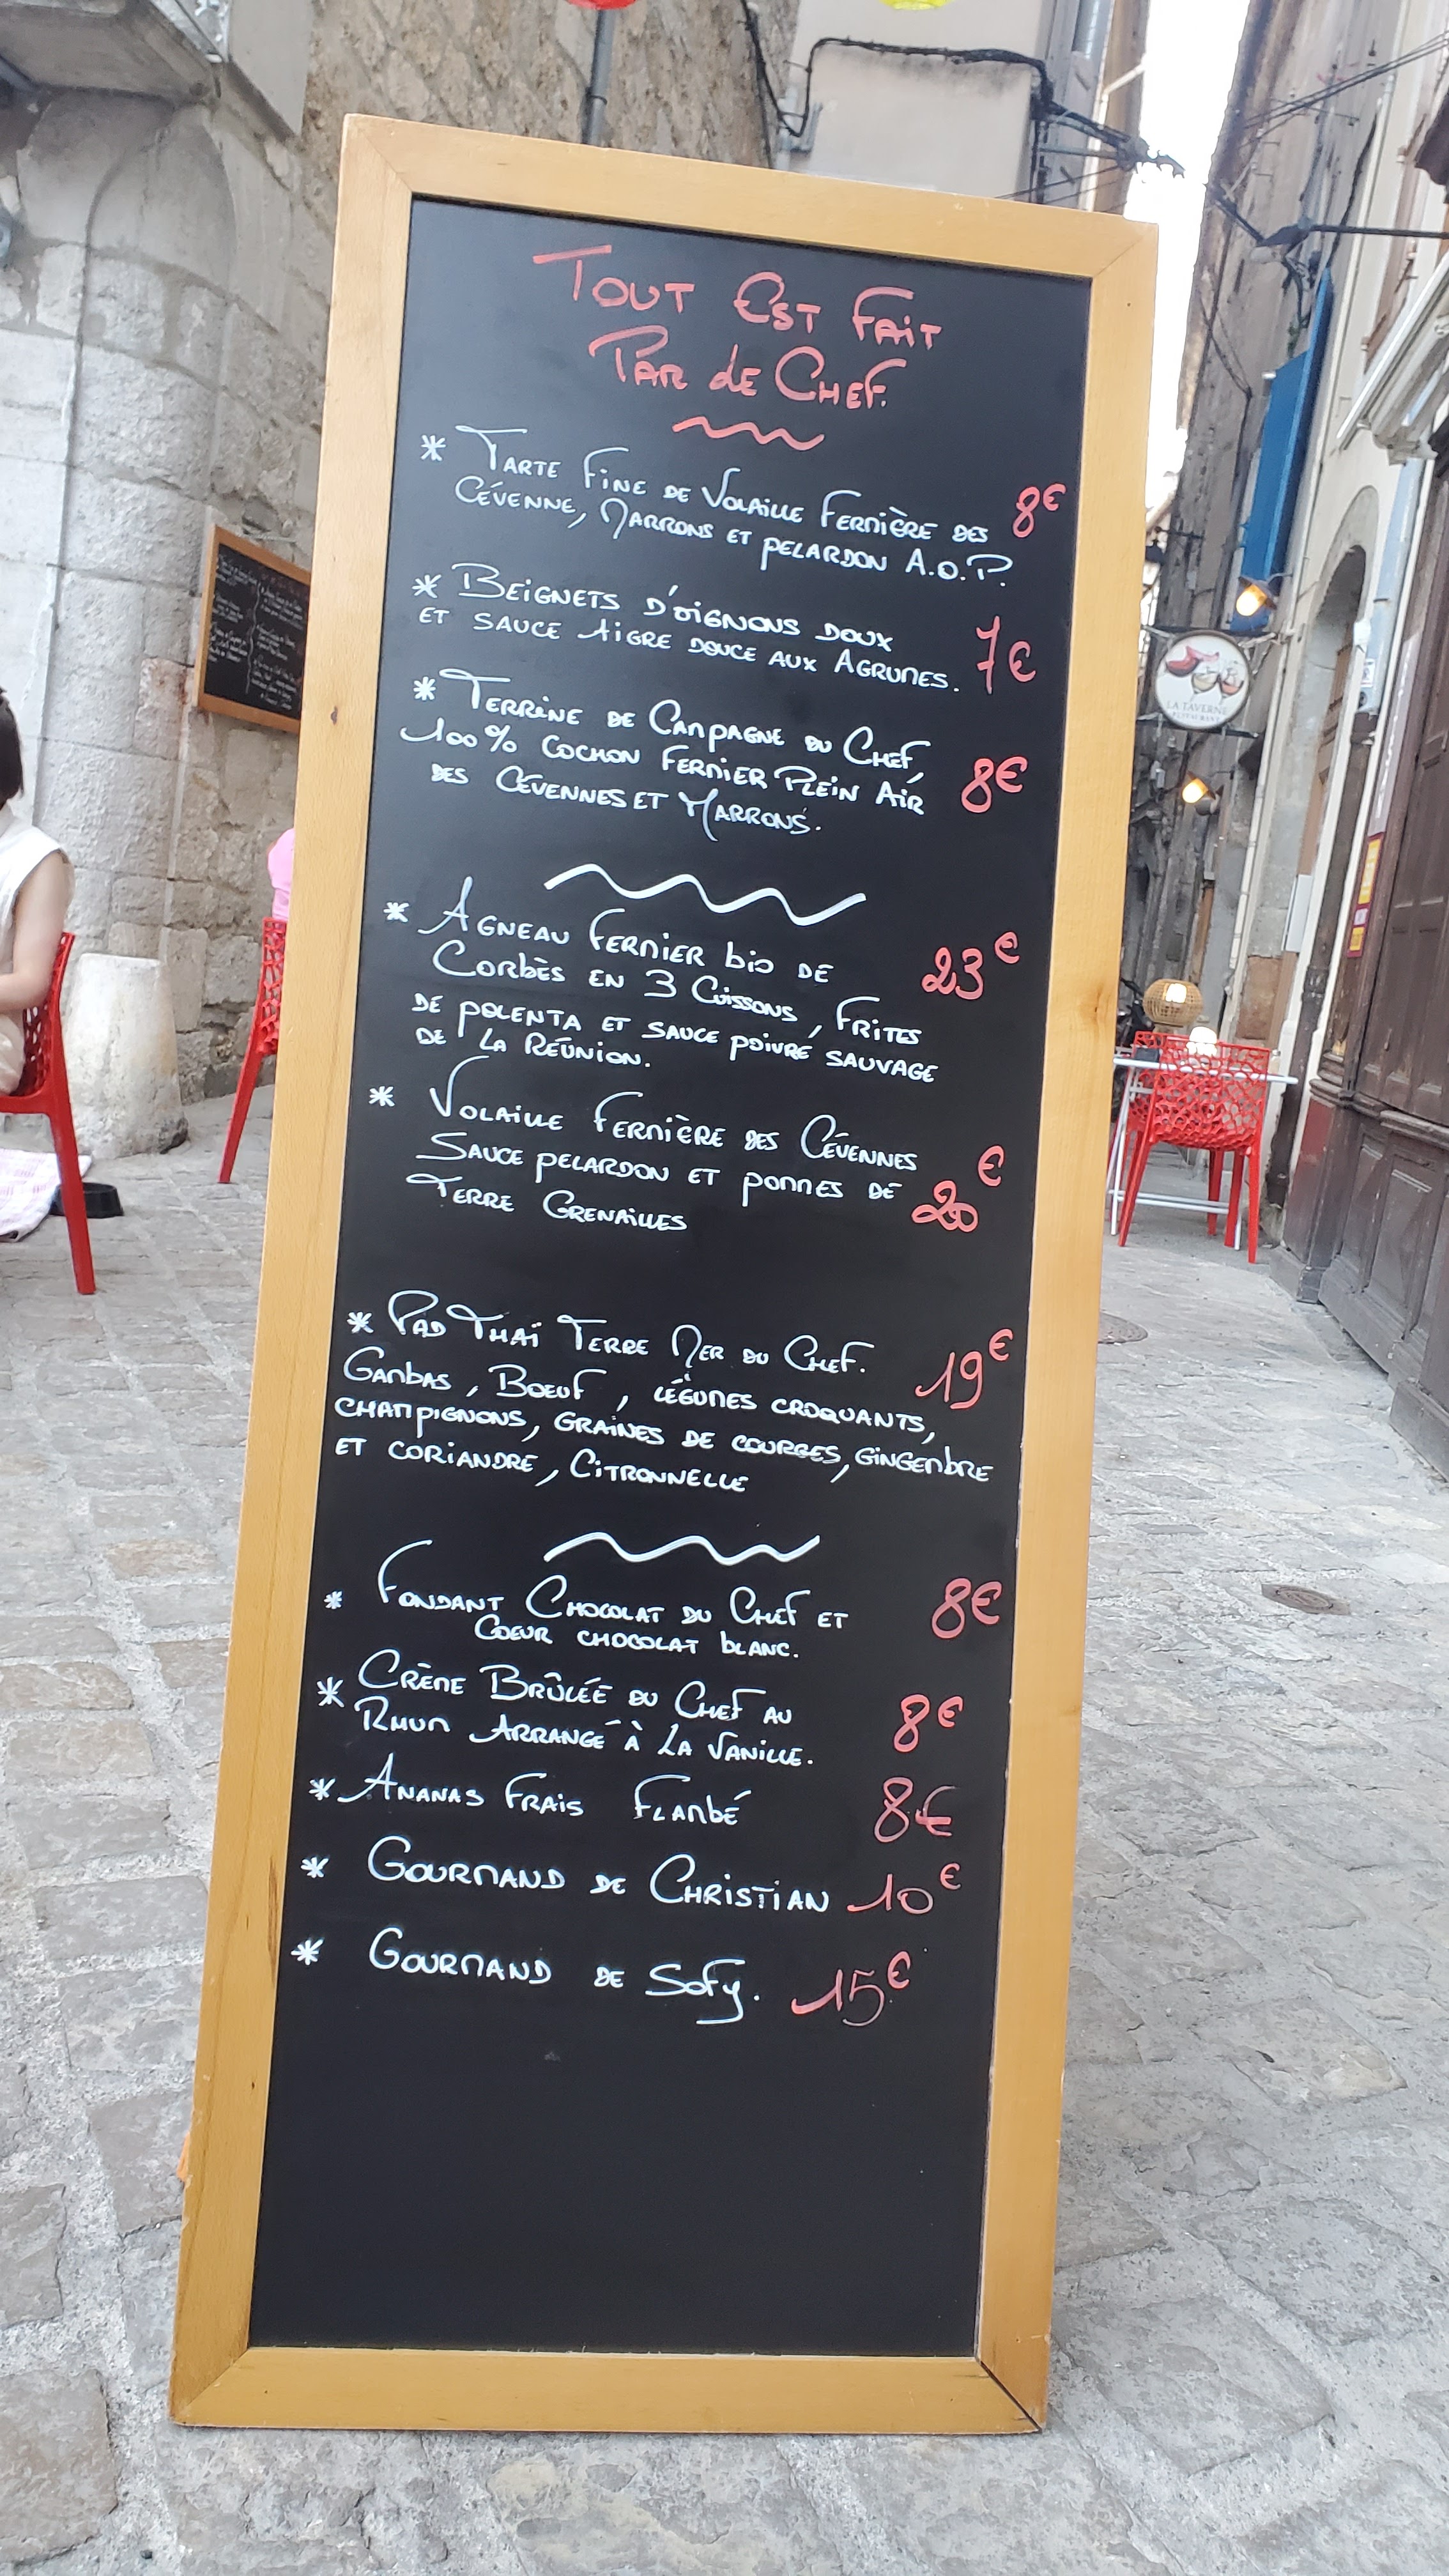 Tout Est Fait
Par de Chef.
* Tarte Fine de Volaille Fermière des 8€
Cévenne, Marrons et pelardon A.O.P.
* Beignets d'oignons doux
et sauce Aigre douce aux Agrumes. 7€
* Terrine de Campagne du Chef,
100% cochon Fermier Plein Air 8€
des Cévennes et Marrons.
* Agneau Fermier bio de 23€
Corbès en 3 Cuissons, Frites
de polenta et sauce poivre sauvage
de La Réunion.
* Volaille Fermière des Cévennes
Sauce pelardon et pommes de 20€
Terre Grenailles
* Pad Thaï Terre Mer du Chef. 19€
Gambas, Boeuf, légumes croquants,
champignons, graines de courges, gingembre
et coriandre, Citronnelle
* Fondant Chocolat du Chef et 8€
Coeur chocolat blanc.
* Crème Brûlée du Chef au 8€
Rhum Arrangé à La Vanille.
* Ananas Frais Flambé 8€
* Gourmand de Christian 10€
* Gourmand de Sofy. 15€
LA TAVERNE
RESTAURANT